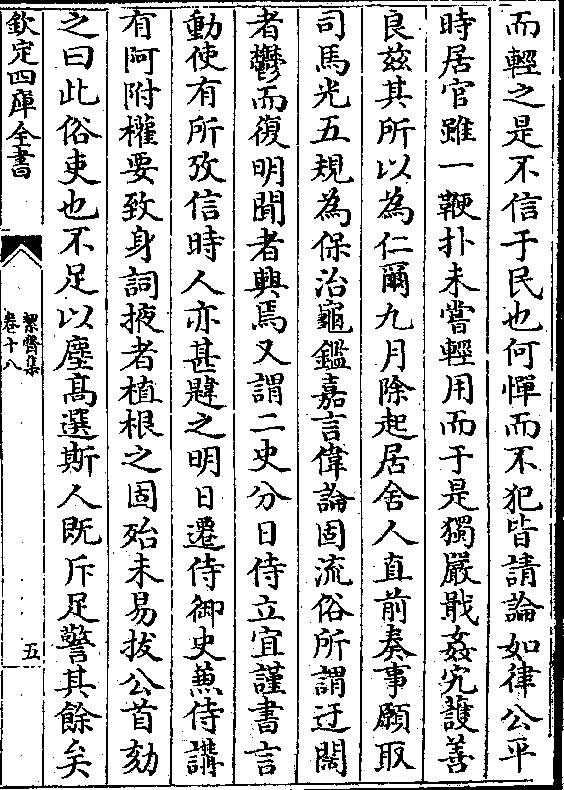 而輕之是不信于民也何憚而不犯皆請論如律公平
時居官雖一鞭扑未嘗輕用而于是獨嚴戢姦宄護善
良兹其所以為仁爾九月除起居舍人直前奏事願取
司馬光五規為保治龜鑑嘉言偉論固流俗所謂迂闊
者鬱而復明聞者興焉又謂二史分日侍立宜謹書言
動使有所攷信時人亦甚韙之明日遷侍御史兼侍講
有阿附權要致身詞掖者植根之固殆未易拔公首劾
之曰此俗吏也不足以塵髙選斯人既斥足警其餘矣
欽定四庫全書
絜齋集
卷十八
五